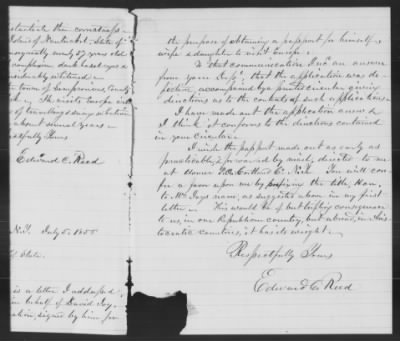 substantiate the
State of
originally nearly 57 years old
complexion dark hazel eyes
considerably whitened
the town of Sempronius County
He visits Europe
of travelling &
about several years
Respectfully Yours
Edward C. Reed
N.Y. July 5. 1855
of State.
is a letter I addressed
in behalf of David Ivy
signed by him for
the purpose of obtaining a passport for himself
wife & daughter to visit Europe.
To that communication I rec. an answer
from your Dept. that the application was de-
fective, accompanied by a printed circular giving
directions as to the contents of such applications.
I have made out the application anew &
I think it conforms to the directions contained
in your circular.
I wish the passport made out as early as
practicable & forwarded by mail, directed to me
at Homer N.Y. You will con-
fer a favor upon me by prefixing the title, Hon.
to Mr name, as suggested above in my first
letter. This would be of but trifling consequence
to us, in our Republican country, but abroad, in Aris-
tocratic countries, it has its weight.
Respectfully Yours
Edward C. Reed